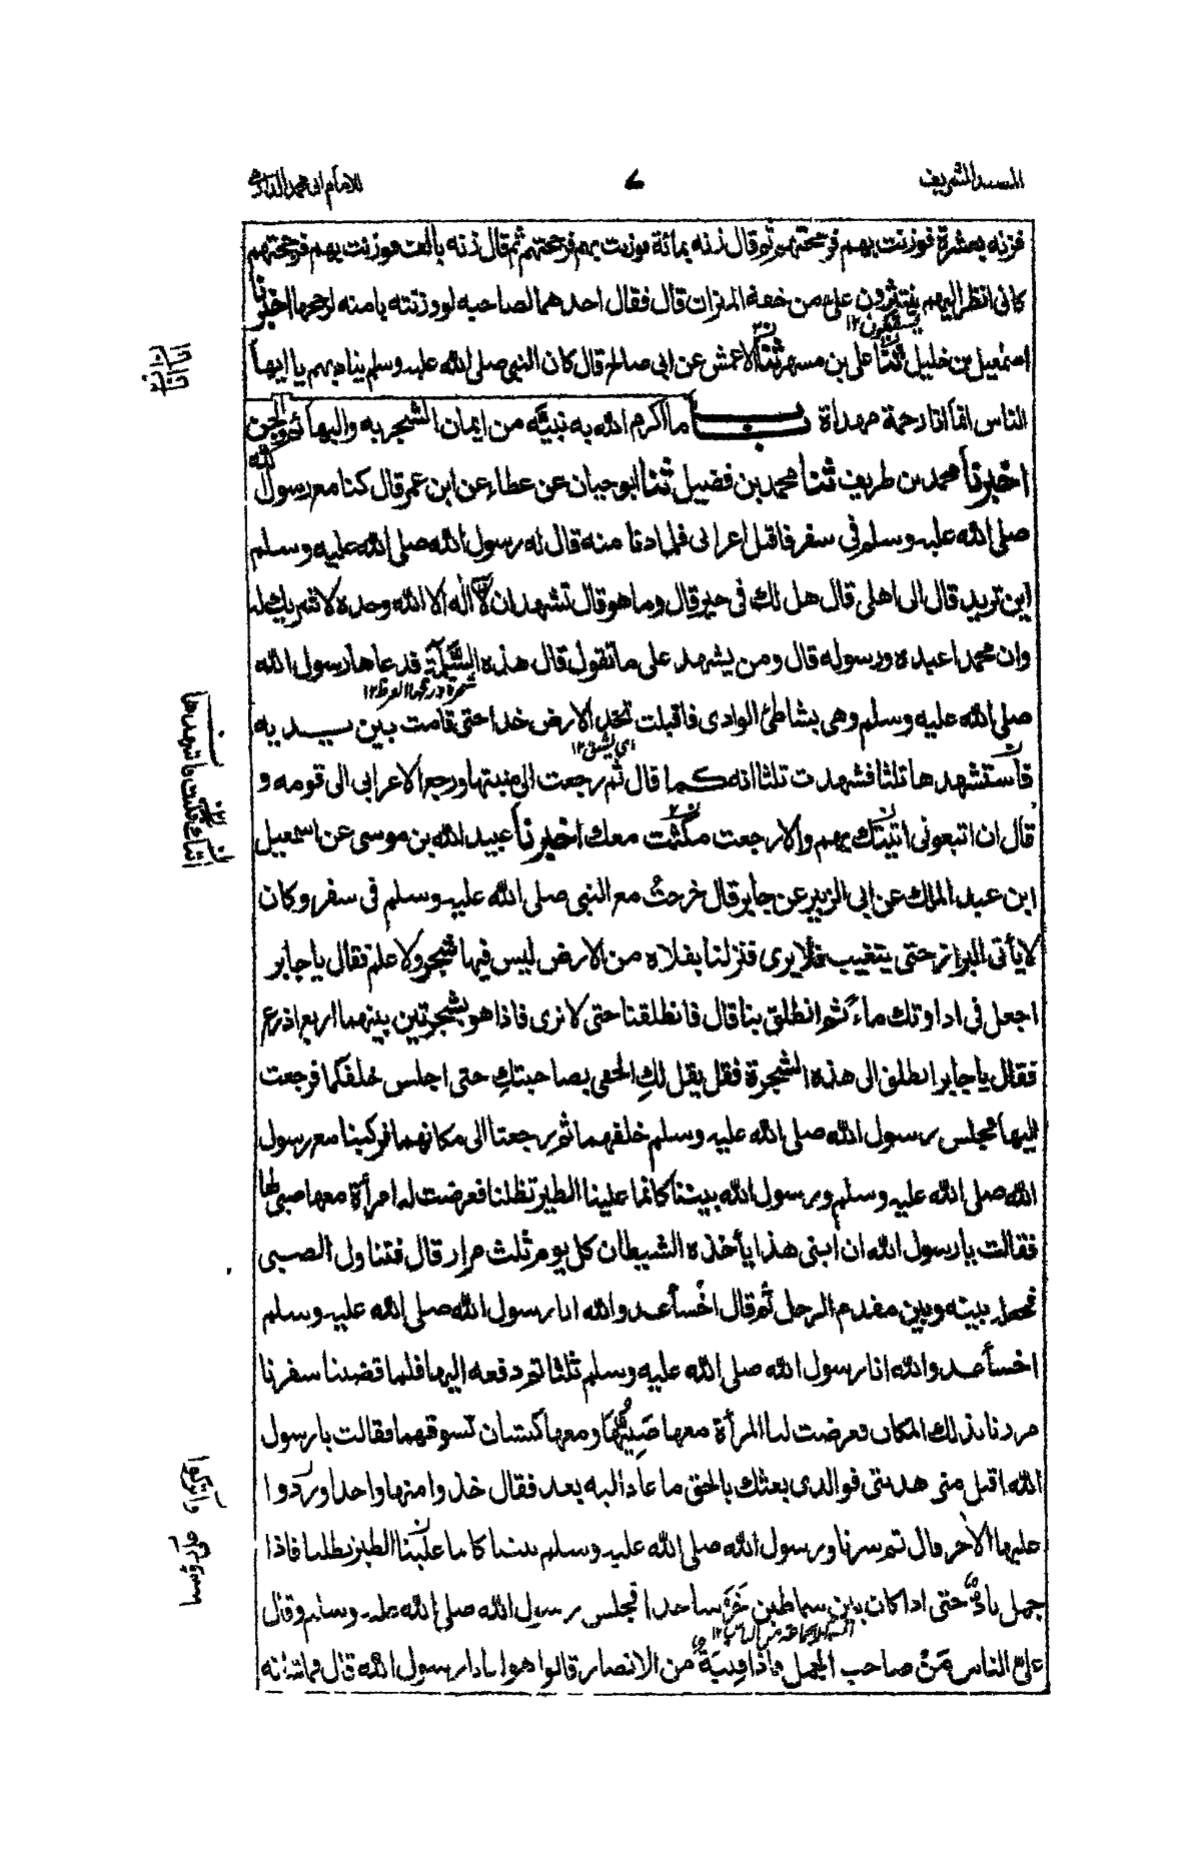 المسند الشريف
٧
للامام ابى محمد الدارمى
فزنه بعشرة فوزنت بهم فرجحتهم ثم قال زنه بمائة فوزنت بهم فرجحتهم ثم قال زنه بالف فوزنت بهم فرجحتهم
كانى انظر اليهم ينتثرون على من خفة الميزان قال فقال احدهما لصاحبه لو وزنته بامته لرجحها اخبرنا
اسمعيل بن خليل ثنا على بن مسهر ثنا الاعمش عن ابى صالح قال كان النبى صلى الله عليه وسلم يناديهم يا ايها
الناس انما انا رحمة مهداة باب ما اكرم الله به نبيه من ايمان الشجر به والبهائم والجن
اخبرنا محمد بن طريف ثنا محمد بن فضيل ثنا ابو حيان عن عطاء عن ابن عمر قال كنا مع رسول الله
صلى الله عليه وسلم فى سفر فاقبل اعرابى فلما دنا منه قال له رسول الله صلى الله عليه وسلم
اين تريد قال الى اهلى قال هل لك فى خير قال وما هو قال تشهد ان لا اله الا الله وحده لا شريك له
وان محمدا عبده ورسوله قال ومن يشهد على ما تقول قال هذه السلمة فدعاها رسول الله
صلى الله عليه وسلم وهى بشاطئ الوادى فاقبلت تخد الارض خدا حتى قامت بين يديه
اى يشق ١٢
فاستشهدها ثلثا فشهدت ثلثا انه كما قال ثم رجعت الى منبتها ورجع الاعرابى الى قومه و
قال ان اتبعونى اتيتك بهم والا رجعت مكثت معك اخبرنا عبيد الله بن موسى عن اسمعيل
ابن عبد الملك عن ابى الزبير عن جابر قال خرجت مع النبى صلى الله عليه وسلم فى سفر وكان
لا يأتى البراز حتى يتغيب فلا يرى فنزلنا بفلاه من الارض ليس فيها شجر ولا علم فقال يا جابر
اجعل فى اداوتك ماء ثم انطلق بنا قال فانطلقنا حتى لا نرى فاذا هو بشجرتين بينهما اربع اذرع
فقال يا جابر انطلق الى هذه الشجرة فقل يقل لك الحقى بصاحبتك حتى اجلس خلفكما فرجعت
اليها فجلس رسول الله صلى الله عليه وسلم خلفهما ثم رجعتا الى مكانهما فركبنا مع رسول
الله صلى الله عليه وسلم ورسول الله بيننا كانما علينا الطير تظلنا فعرضت له امرأة معها صبى لها
فقالت يا رسول الله ان ابنى هذا يأخذه الشيطان كل يوم ثلث مرار قال فتناول الصبى
فجعله بينه وبين مقدم الرحل ثم قال اخسأ عدو الله انا رسول الله صلى الله عليه وسلم
اخسأ عدو الله انا رسول الله صلى الله عليه وسلم ثلثا ثم دفعه اليها فلما قضينا سفرنا
مررنا بذلك المكان فعرضت لنا المرأة معها صبيها ومعها كبشان تسوقهما فقالت يا رسول
الله اقبل منى هديتى فوالذى بعثك بالحق ما عاد اليه بعد فقال خذوا منها واحدا وردوا
عليها الاخر قال ثم سرنا ورسول الله صلى الله عليه وسلم بيننا كانما علينا الطير تظلنا فاذا
جمل ناد حتى اذا كان بين سماطين خر ساجدا فجلس رسول الله صلى الله عليه وسلم وقال
على الناس من صاحب الجمل فاذا فتية من الانصار قالوا هو لنا يا رسول الله قال فما شانه